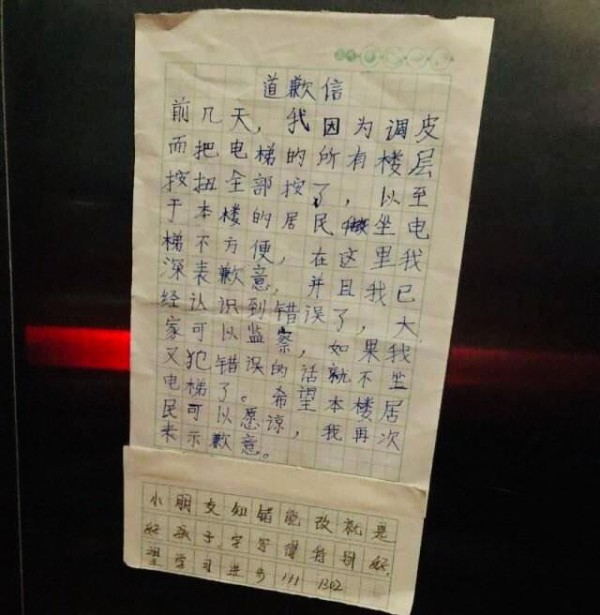 道歉信
前几天，我因为调皮
而把电梯的所有楼层
按扭全部按了，以至
于本楼的居民坐电
梯不方便，在这里我
深表歉意，并且我已
经认识到错误了，大
家可以监察，如果我
又犯错误的话就不坐
电梯了。希望本楼居
民可以愿谅，我再次
来示歉意。
小朋友知错能改就是
好孩子，字写得特别好，
望学习进步!!! 1302